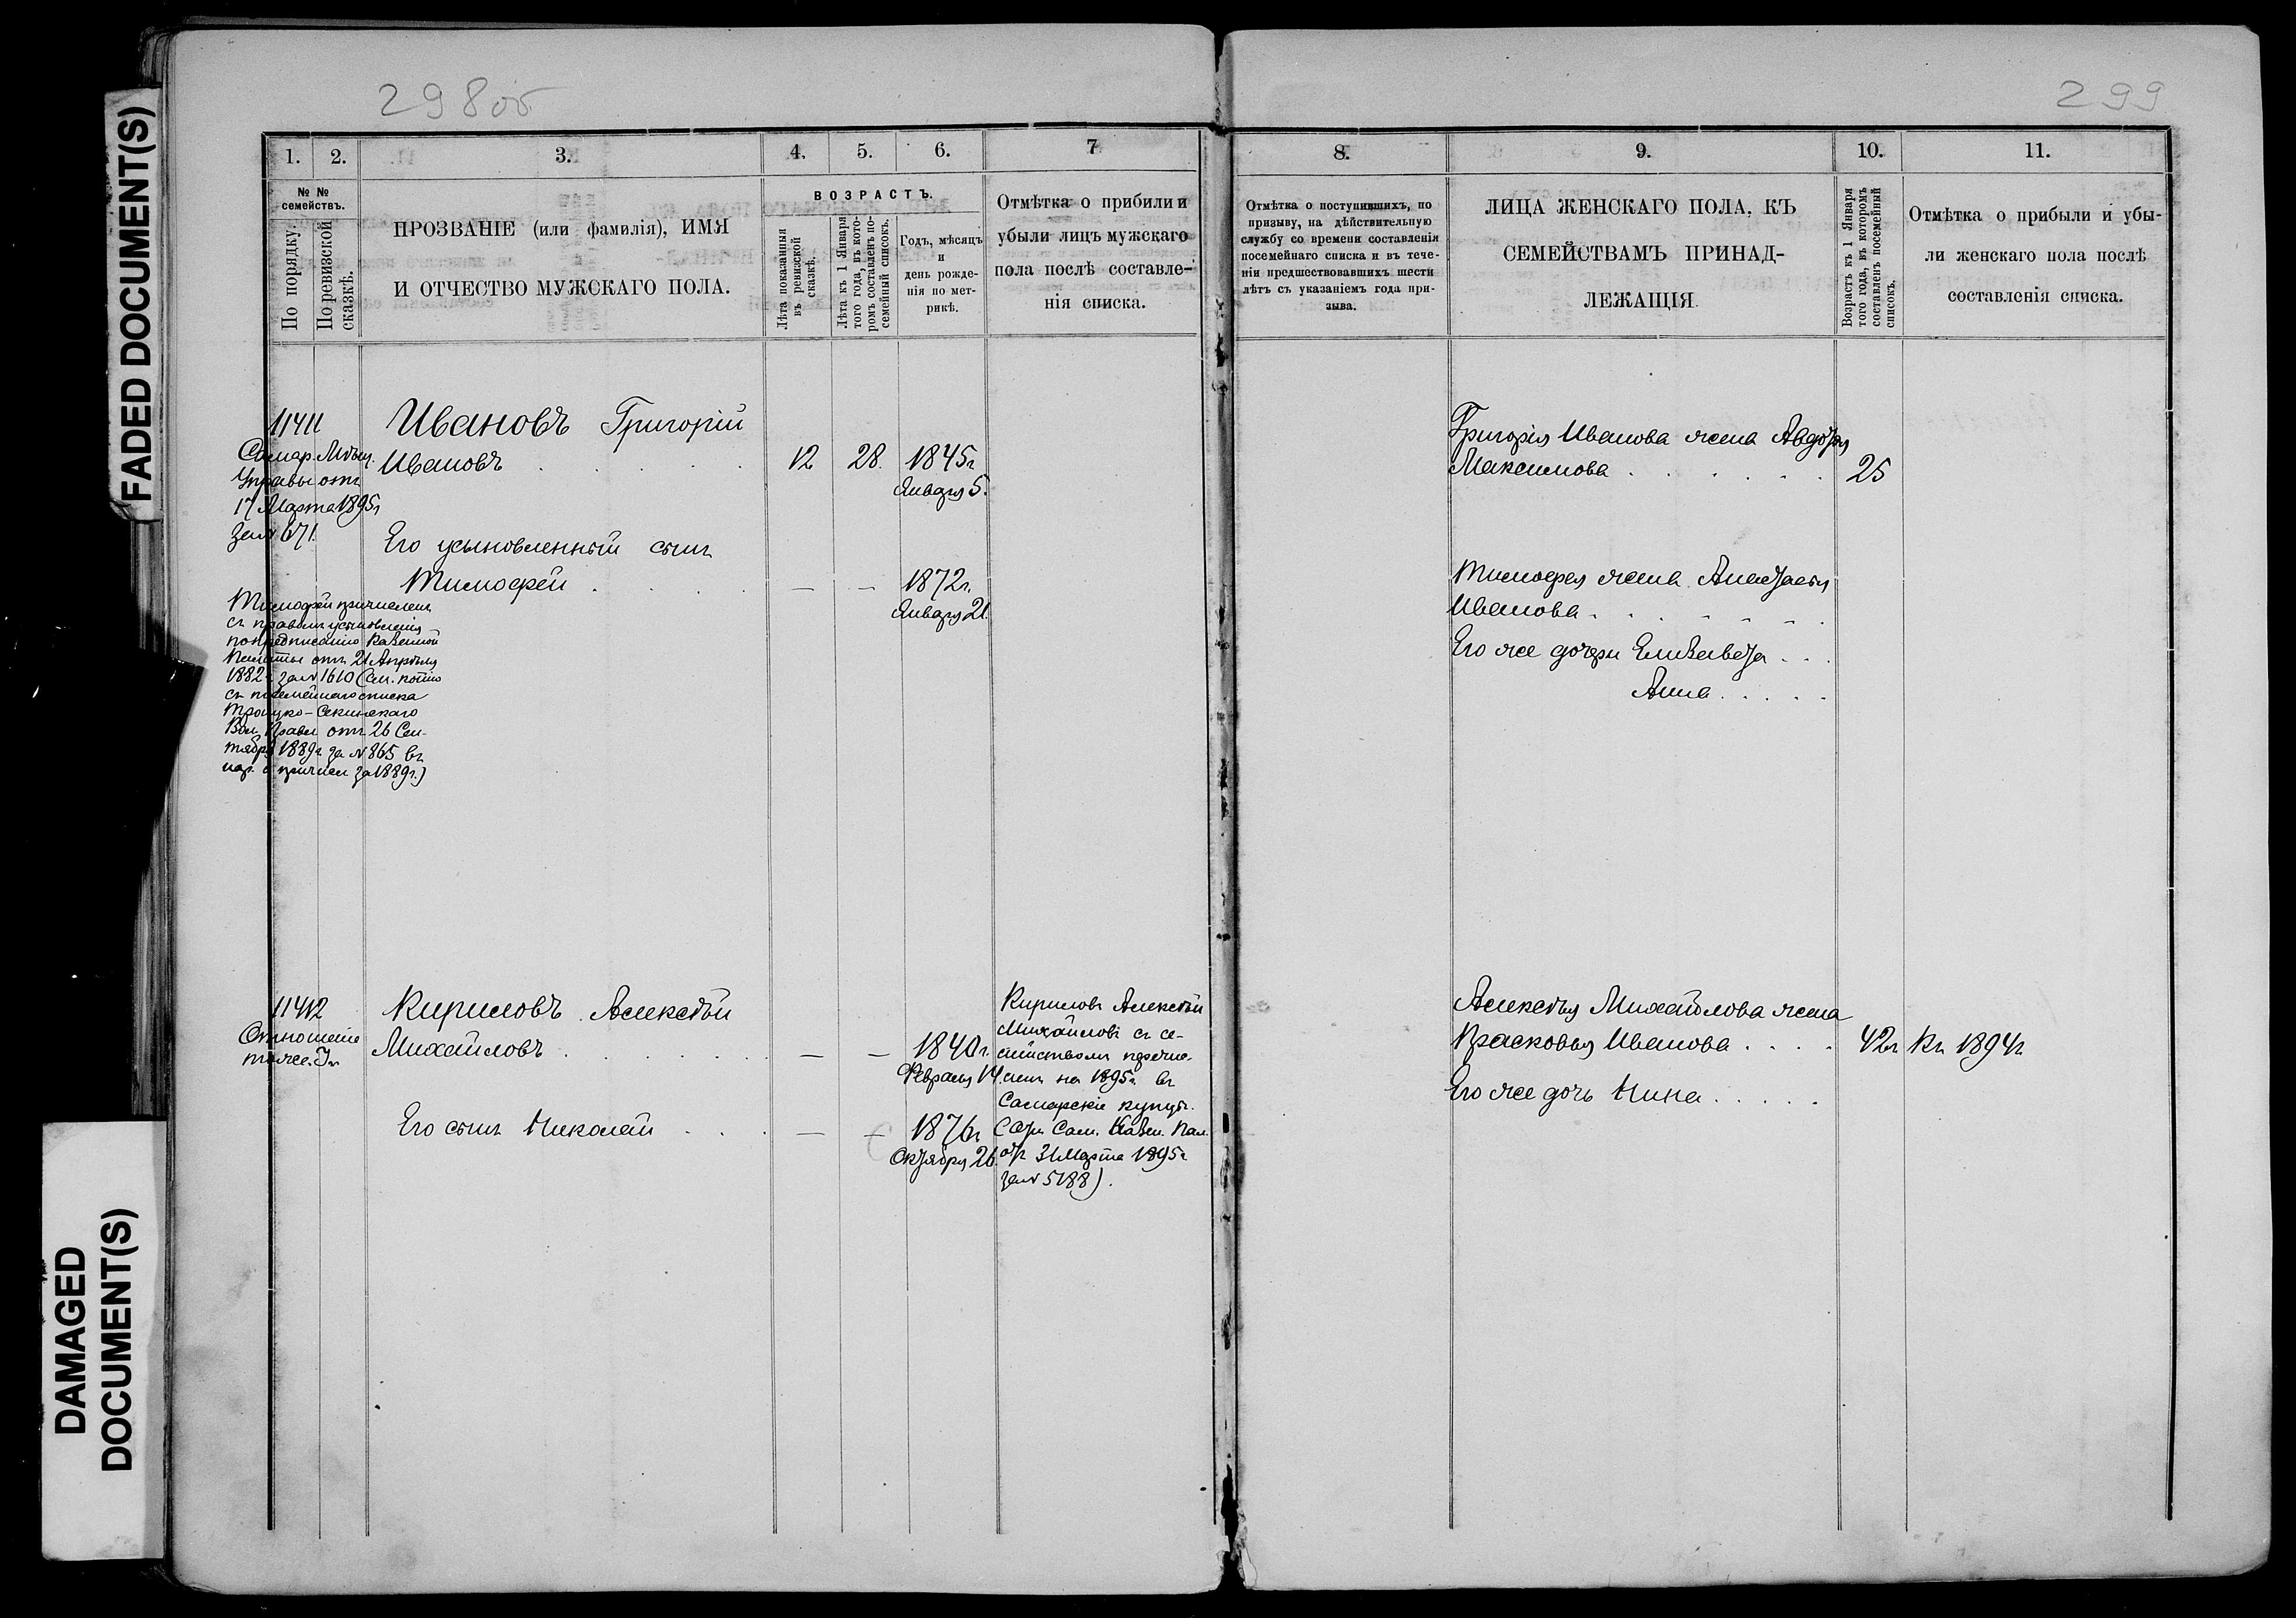 FADED DOCUMENT(S)
DAMAGED
DOCUMENT(S)
298об
1. 2. 3. 4. 5. 6. 7
№ №
семействъ.
По порядку.
По ревизской
сказкѣ.
ПРОЗВАНІЕ (или фамилія), ИМЯ
И ОТЧЕСТВО МУЖСКАГО ПОЛА.
ВОЗРАСТЪ.
Лѣта показанныя
въ ревизской
сказкѣ.
Лѣта къ 1 Января
того года, въ кото-
ромъ составленъ по-
семейный списокъ.
Годъ, мѣсяцъ
и
день рожде-
нія по мет-
рикѣ.
Отмѣтка о прибыли и
убыли лицъ мужскаго
пола послѣ составле-
нія списка.
11411
Самар. Мѣщ.
Управы отъ
17 Марта 1895г
за № 671.
Ивановъ Григорій
Ивановъ . . . . . 12 28. 1845г
Января 5.
Его усыновленный сынъ
Тимофей . . . . — — 1872г.
Января 21.
Тимофей причисленъ
съ правомъ усыновленія
по предписанію Казенной
Палаты отъ 21 Апрѣля
1882г за № 1610 (см. копію
съ посемейнаго списка
Троицко-Секинскаго
Вол. Правл отъ 26 Сен-
тября 1889г за № 865 въ
пар. о причисл за 1889г.)
11412
Отношеніе
тоже.
Кириловъ Алексѣй
Михайловъ . . . . . — — 1840г.
Февраля 14.
Его сынъ Николай . . . — — 1876г
Октября 26.
Кириловъ Алексѣй
Михайловъ съ се-
мействомъ перечис-
ленъ на 1895г въ
Самарскіе купцы.
(Отн. Сам. Казен. Пал.
отъ 31 Марта 1895г
за № 5188).
299
8. 9. 10. 11.
Отмѣтка о поступившихъ, по
призыву, на дѣйствительную
службу со времени составленія
посемейнаго списка и въ тече-
ніи предшествовавшихъ шести
лѣтъ съ указаніемъ года при-
зыва.
ЛИЦА ЖЕНСКАГО ПОЛА, КЪ
СЕМЕЙСТВАМЪ ПРИНАД-
ЛЕЖАЩІЯ.
Возрастъ къ 1 Января
того года, въ которомъ
составленъ посемейный
списокъ.
Отмѣтка о прибыли и убы-
ли женскаго пола послѣ
составленія списка.
Григорія Иванова жена Авдотья
Максимова . . . . . . 25
Тимофея жена Анастасія
Иванова . . . . . . .
Его же дочери Елизавета . . .
Анна . . . . .
Алексѣя Михайлова жена
Прасковья Иванова . . . . 42г Къ 1894г
Его же дочь Нина . . . . .